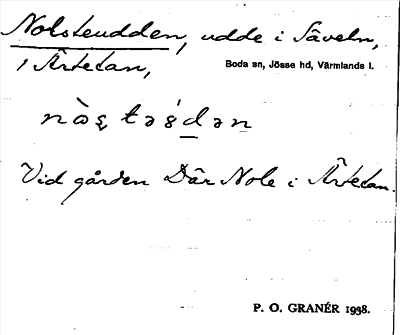 Nolsteudden, udde i Säveln,
i Ärtetan,
Boda sn, Jösse hd, Värmlands l.
Vid gården Där Nole i Ärtetan.
P. O. GRANÉR 1938.